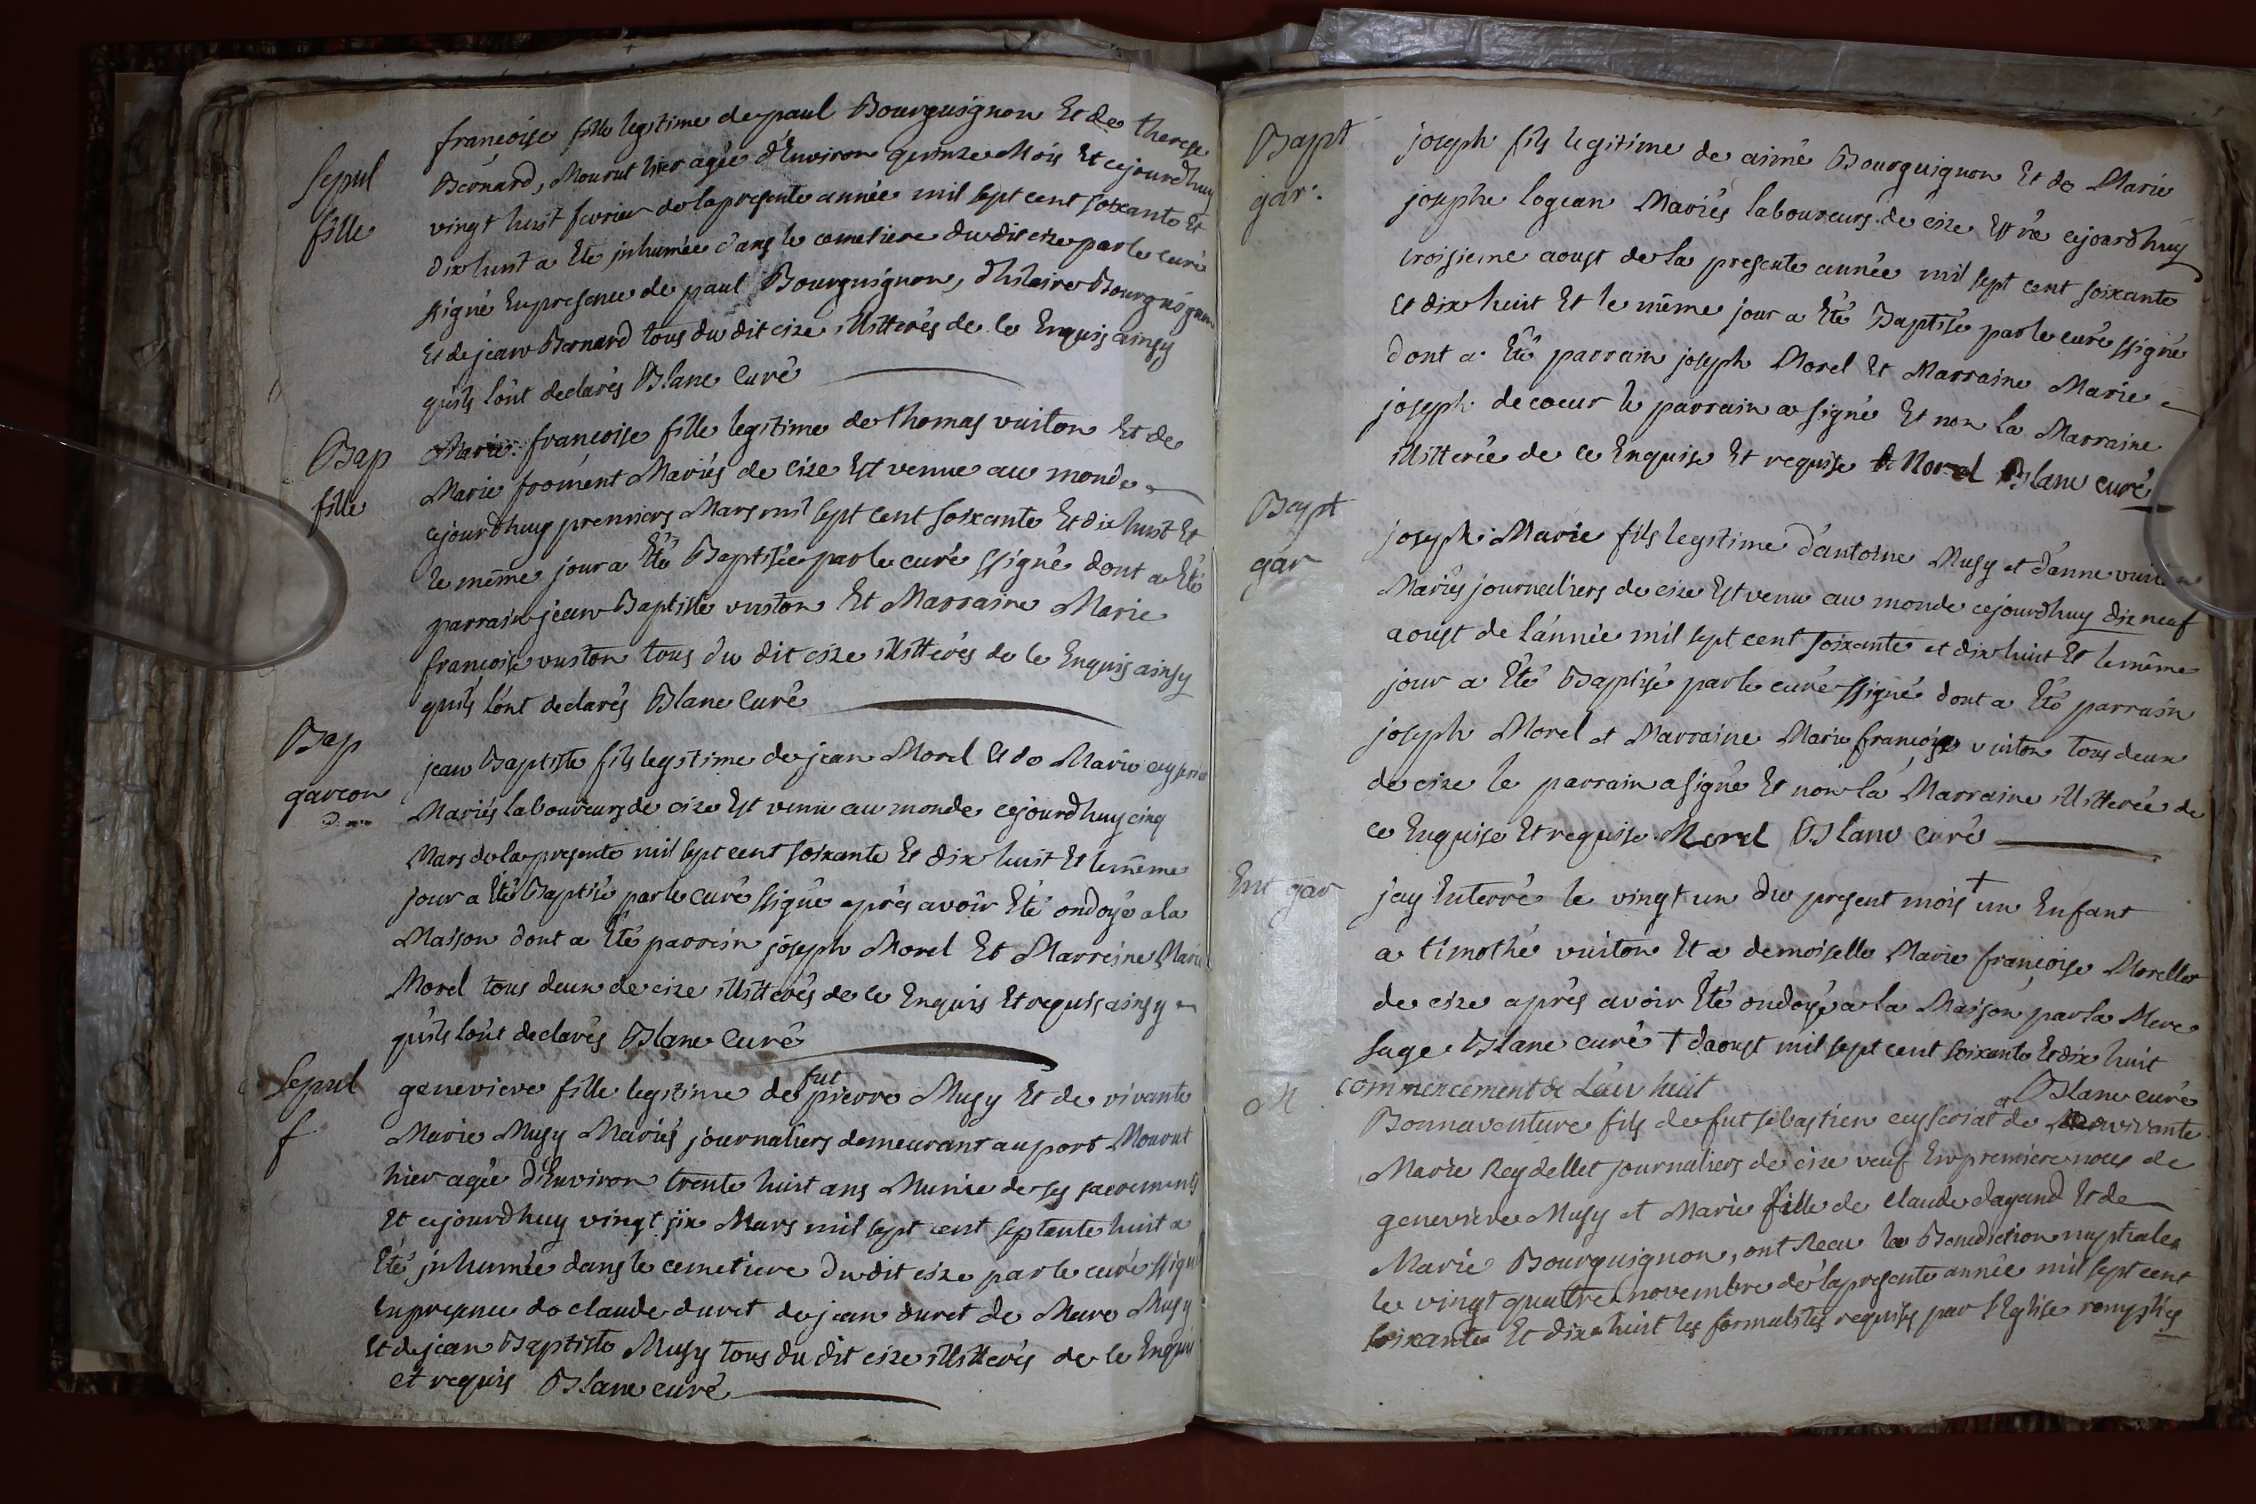 Sepul
fille
françoise fille legitime de paul Bourguignon Et de therese
Bernard, Mourut hier agée d'Environ quinze Mois Et cejourdhuy
vingt huit fevrier de la presente année mil sept cent soixante Et
dix huit a Eté inhumée dans le cemetiere du dit cize par le curé
ssigné En presence de paul Bourguignon, d'hilaire Bourguignon
Et de jean Bernard tous du dit cize illitterés de ce Enquis ainsy
qu'ils l'ont declarés Blanc Curé
Bap
fille
Marie françoise fille legitime de thomas vuiton Et de
Marie froment Mariés de cize Est venue au monde
cejourdhuy premiers Mars mil sept cent soixante Et dix huit Et
le même jour a Eté Baptisée par le curé ssigné dont a Eté
parrain jean Baptiste vuiton Et Marraine Marie
françoise vuiton tous du dit cize illitterés de ce Enquis ainsy
quils l'ont declarés Blanc Curé
Bap
garcon
jean Baptiste fils legitime de jean Morel Et de Marie ceyseriat
Mariés laboureurs de cize Est venu au monde cejourdhuy cinq
Mars de la presente mil sept cent soixante Et dix huit Et le même
jour a Eté Baptisé par le curé ssigné après avoir Eté ondoyé a la
Maison dont a Eté parrein joseph Morel Et Marreine Marie
Morel tous deux de cize illitterés de ce Enquis Et requis ainsy
qu'ils l'ont declarés Blanc Curé
Sepul
f
genevieve fille legitime de fut pierre Musy Et de vivante
Marie Musy Mariés journaliers demeurant au port Mourut
hier agée d'Environ trente huit ans Munie de ses sacrements
Et cejourdhuy vingt six Mars mil sept cent septante huit a
Eté inhumée dans le cemetiere du dit cize par le curé ssigné
En presence de claude duret de jean duret de Marc Musy
Et de jean Baptiste Musy tous du dit cize illitterés de ce Enquis
et requis Blanc curé
Bapt
gar:
joseph fils legitime de aimé Bourguignon Et de Marie
josephe logean Mariés laboureurs de cize Est né cejourdhuy
troisieme aoust de la presente année mil sept cent soixante
Et dix huit Et le même jour a Eté Baptisé par le curé ssigné
dont a Eté parrain joseph Morel Et Marraine Marie
joseph decoeur le parrain a signé Et non la Marraine
illitterée de ce Enquise Et requise Morel Blanc curé
Bapt
gar
joseph Marie fils legitime d'antoine Musy et d'anne vuiton
Mariés journaliers de cize Est venu au monde cejourdhuy dix neuf
aoust de l'année mil sept cent soixante et dix huit Et le même
jour a Eté Baptisé par le curé ssigné dont a Eté parrain
joseph Morel et Marraine Marie françoise vuiton tous deux
de cize le parrain a signé Et non la Marraine illitterée de
ce Enquise Et requise Morel Blanc Curé
Ent gar
j'ay Enterré le vingt un du present mois + un Enfant
a timothé vuiton Et a demoiselle Marie françoise Morellet
de cize après avoir Eté ondoyé a la Maison par la Mere
sage Blanc curé + d'aoust mil sept cent soixante Et dix huit
Blanc curé
M
commencement de l'an huit
Bonnaventure fils de fut sébastien ceyseriat et de vivante
Marie Reydellet journaliers de cize veuf En premiere noces de
genevieve Musy et Marie fille de Claude dagand Et de
Marie Bourguignon, ont Recu la Benediction nuptiale
le vingt quatre novembre de la presente année mil sept cent
soixante Et dix huit les formalités requises par l'Eglise remplies